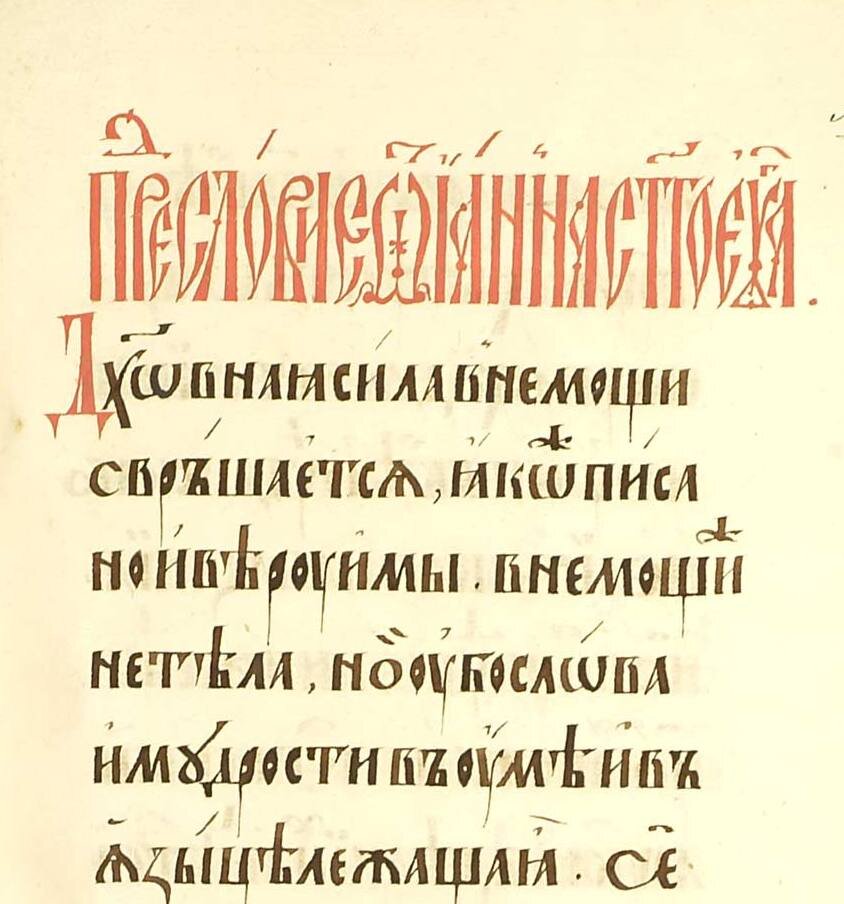 Преⷣсловие ѿ іѡанна ст҃го еѵⷢ҇ла.
Дх҃ѡвнаꙗ сила в немощи
свръшаетсѧ, ꙗкѡⷤ писа
но и вѣроуимы. в немощиⷤ
не тѣла, но оубо слѡва
и мꙋдрости въ оумѣ и въ
ѧзыцѣ лежащаꙗ. Се